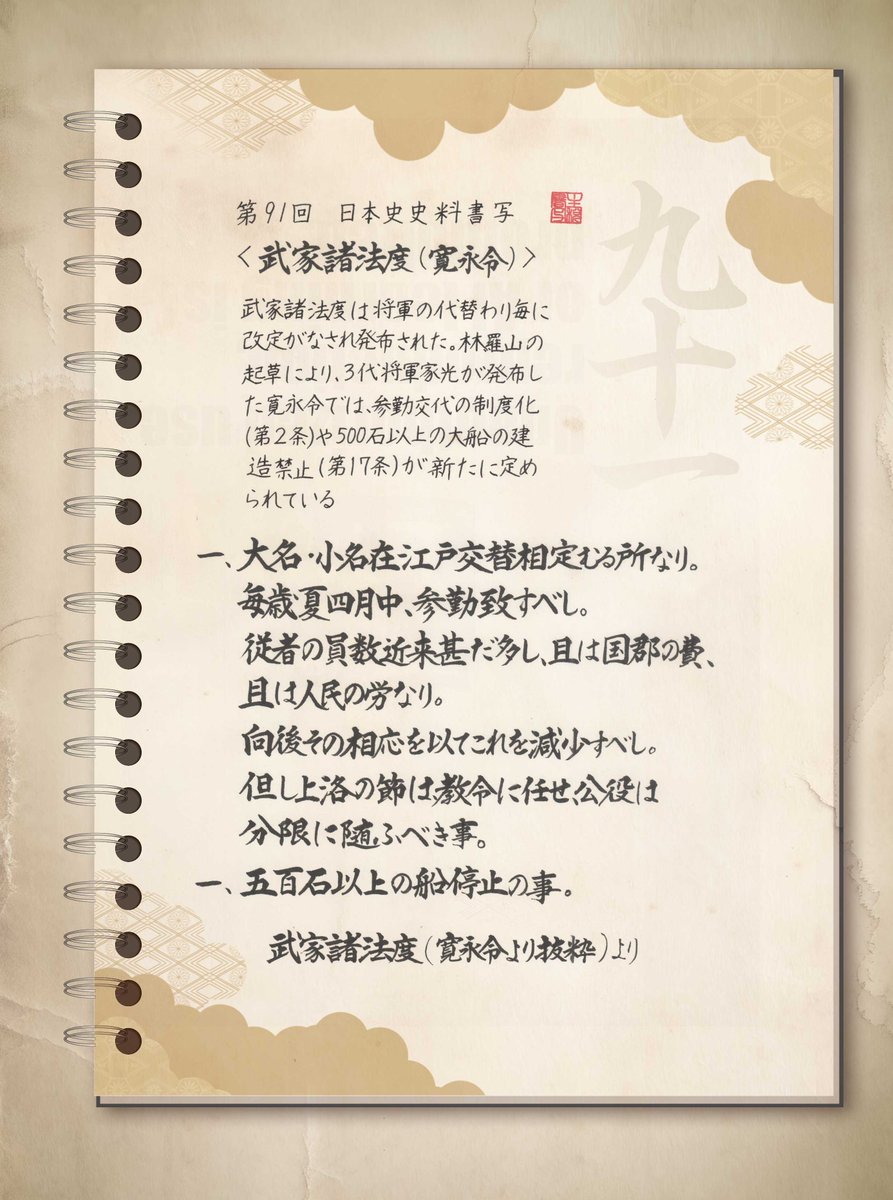 第91回 日本史史料書写
<武家諸法度(寛永令)>
九十一
武家諸法度は将軍の代替わり毎に
改定がなされ発布された。林羅山の
起草により、3代将軍家光が発布し
た寛永令では、参勤交代の制度化
(第2条)や500石以上の大船の建
造禁止(第17条)が新たに定め
られている
一、大名・小名在江戸交替相定むる所なり。
毎歳夏四月中、参勤致すべし。
従者の員数近来甚だ多し、且は国郡の費、
且は人民の労なり。
向後その相応を以てこれを減少すべし。
但し上洛の節は、教令に任せ、公役は
分限に随ふべき事。
一、五百石以上の船停止の事。
武家諸法度(寛永令より抜粋)より